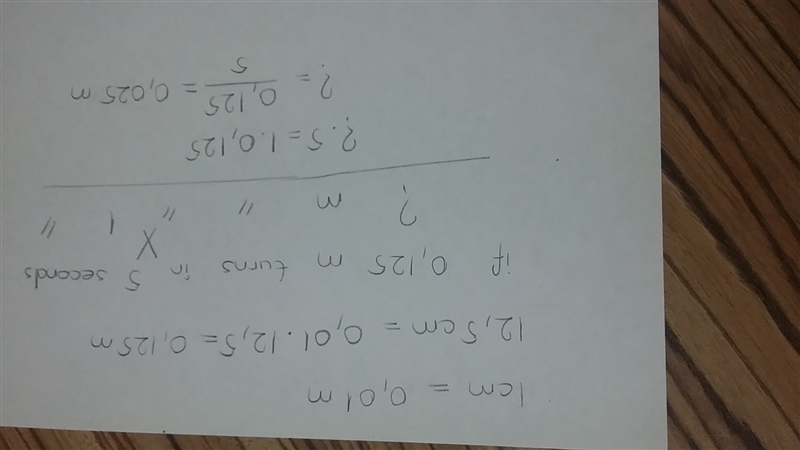 1cm = 0,01m
12,5cm = 0,01 · 12,5 = 0,125m
if 0,125 m turns in 5 seconds
? m " " X 1 "
? · 5 = 1 · 0,125
? = 0,125/5 = 0,025 m